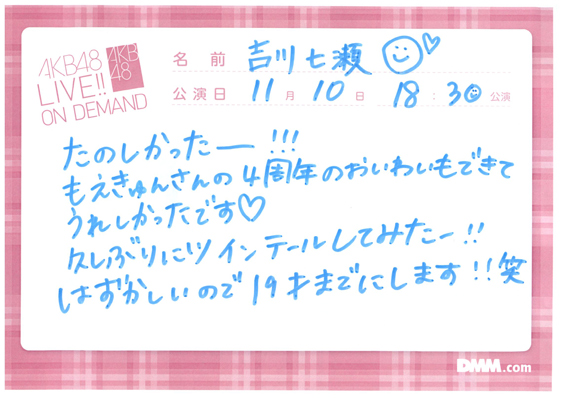 AKB48
LIVE!!
ON DEMAND
AKB
48
名前 吉川七瀬
公演日 11月10日 18:30公演
たのしかったー!!!
もえきゅんさんの4周年のおいわいもできて
うれしかったです♡
久しぶりにツインテールしてみたー!!
はずかしいので19才までにします!!笑
DMM.com